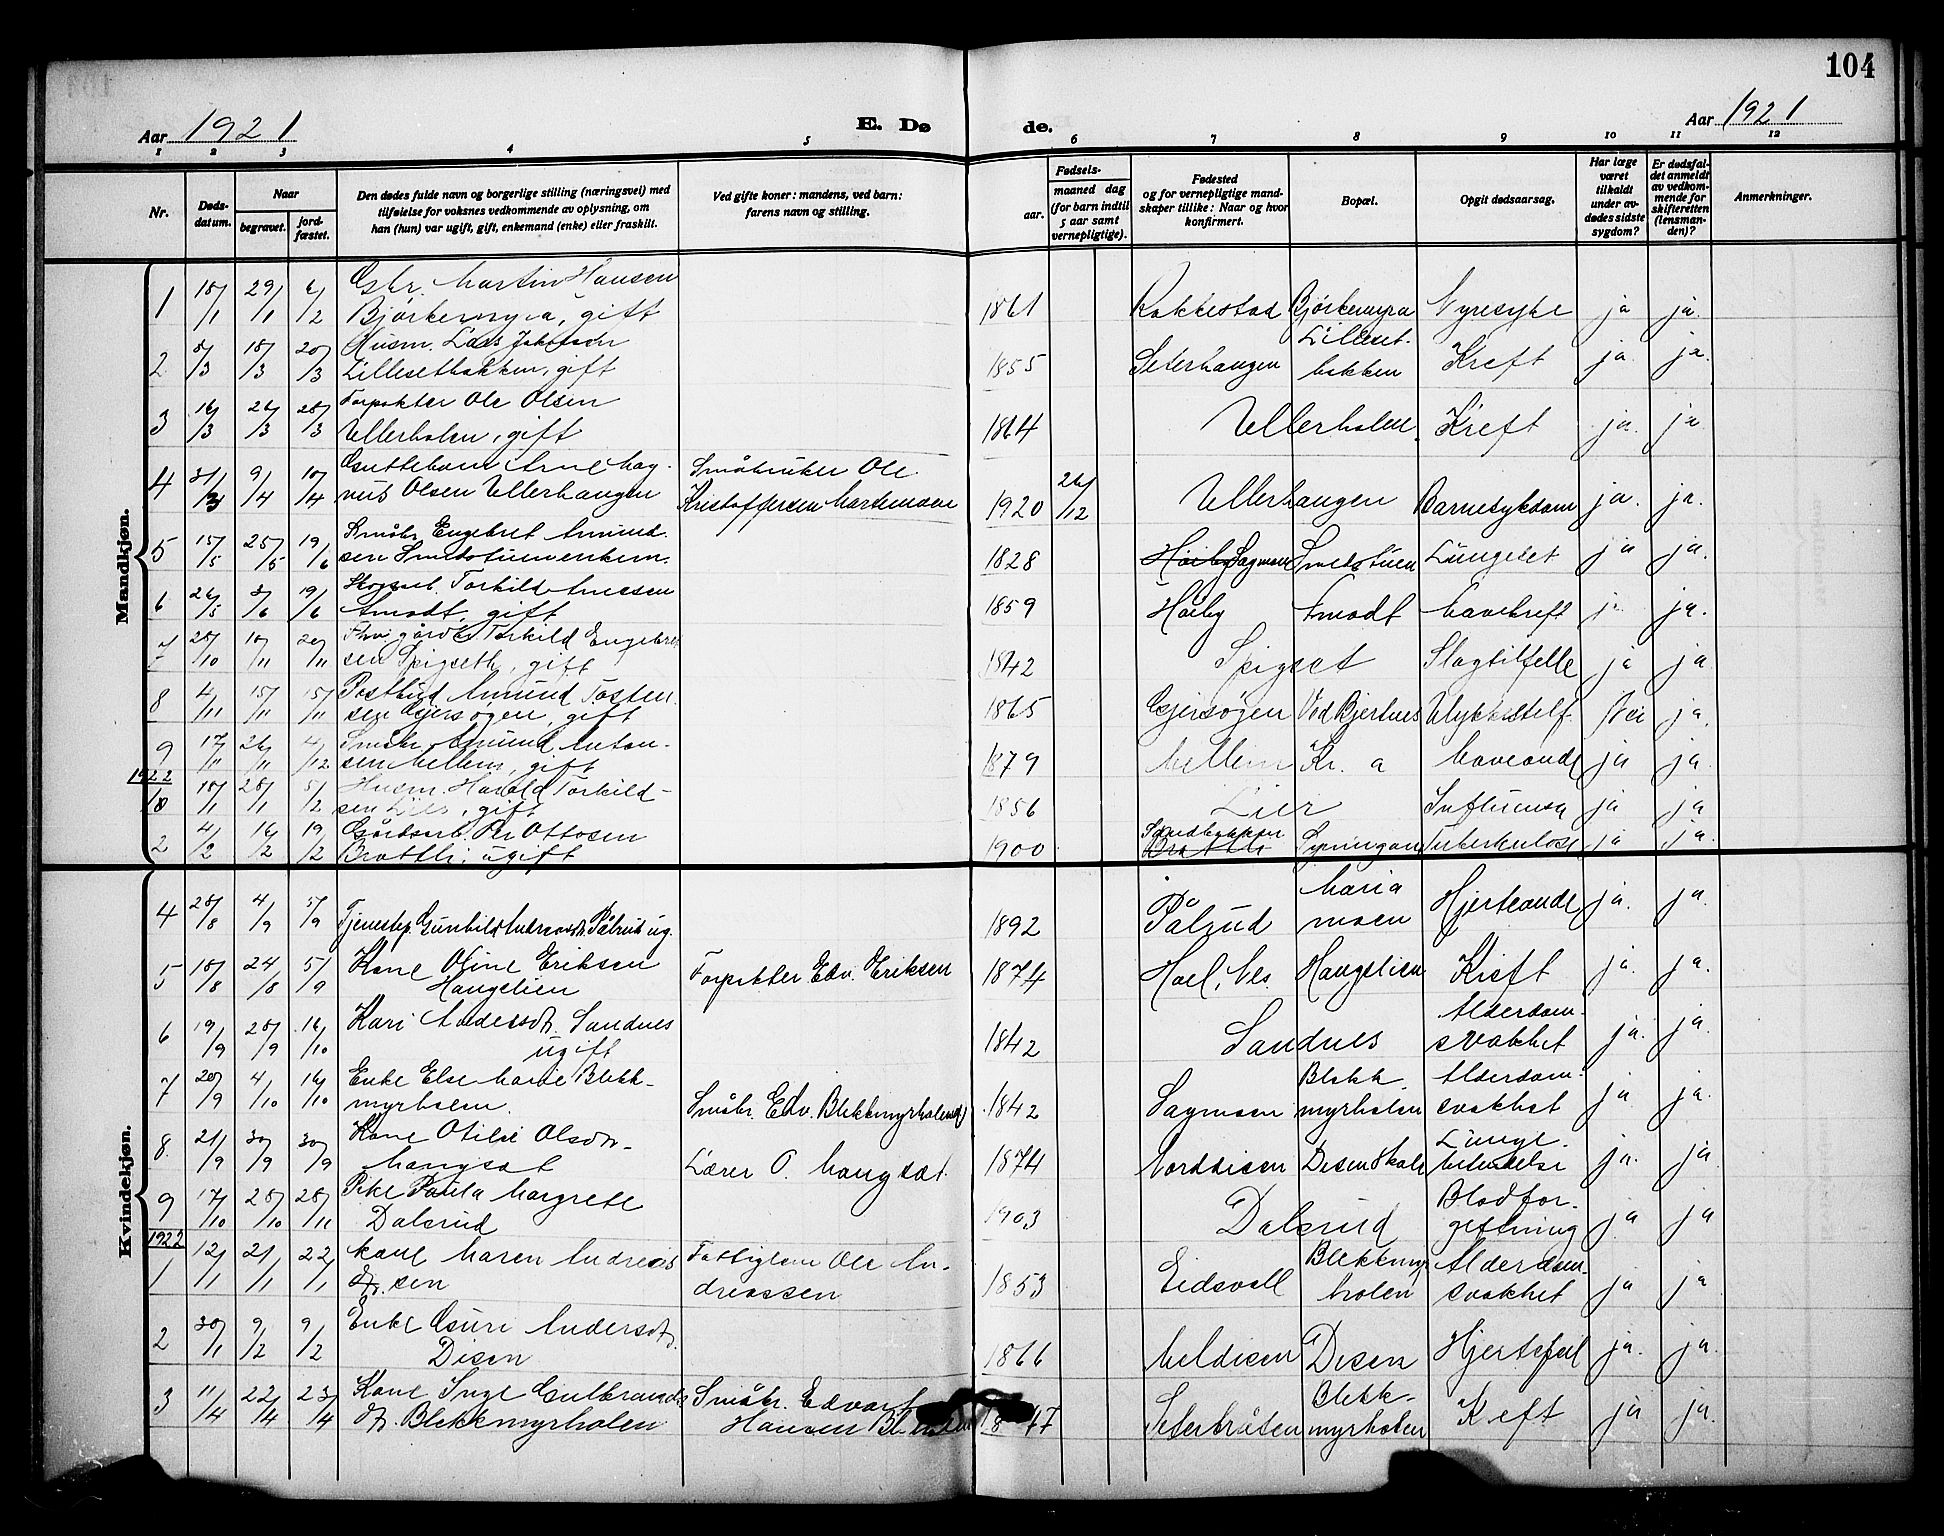 104
Aar 1921
E. Dø de.
Aar 1921
1 2 3 4 5 6 7 8 9 10 11 12
Nr.
Dødsdatum.
Naar
begravet.
jordfæstet.
Den dødes fulde navn og borgerlige stilling (næringsvei) med
tilføielse for voksnes vedkommende av oplysning, om
han (hun) var ugift, gift, enkemand (enke) eller fraskilt.
Ved gifte koner: mandens, ved barn:
farens navn og stilling.
Fødsels-
aar.
maaned dag
(for barn indtil
5 aar samt
vernepligtige).
Fødested
og for vernepligtige mand-
skaper tillike: Naar og hvor
konfirmert.
Bopæl.
Opgit dødsaarsag.
Har læge
været
tilkaldt
under av-
dødes sidste
sygdom?
Er dødsfal-
det anmeldt
av vedkom-
mende for
skifteretten
(lensman-
den)?
Anmerkninger.
Mandkjøn.
1 18/1 29/1 6/2 Gbr. Martin Hansen
Bjørkemyra, gift 1861 Rakkestad Bjørkemyra Nyresyke ja ja.
2 8/3 18/3 20/3 Husm. Lars Johansen
Lillesetbakken, gift 1855 Seterhaugen Lilleset-
bakken Kreft ja. ja.
3 16/3 26/3 28/3 Forpakter Ole Olsen
Ullerholen, gift 1864 Ullerholen. Kreft ja. ja
4 31/3 9/4 10/4 Guttebarn Arne Mag-
nus Olsen Ullerhaugen Småbruker Ole
Kristoffersen Martemoen 1920 26/12 Ullerhaugen Barnesykdom ja. ja.
5 15/5 25/5 19/6 Småbr. Engebret Amund-
sen Smedstuen enkem. 1828 Høiby Sagmoen Smedstuen Lungebet ja ja.
6 26/5 3/6 19/6 Skogsarb. Torkild
Amodt, gift 1859 Høiby Amodt Mavekreft ja.
7 28/10 10/11 20/11 gårdbr. Torkild Engebret-
sen Spigseth, gift 1842 Spigset Slagtilfelle ja ja
8 4/11 15/11 15/11 Postbud Amund Tosten-
sen Gjersøgen, gift 1865 Gjersøgen Ved Bjertnes Ulykkestilf. Nei ja.
9 17/11 26/11 4/12 Småbr. Amund Anton-
sen Mellem, gift 1879 Mellem Kr. a Maveonde ja ja
1922
1 18/1 28/1 5/2 Husm. Harald Torkild-
sen Lier, gift 1856 Lier Influensa ja ja
2 4/2 16/2 19/2 Gårdsarb. Per Ottosen
Brattli, ugift 1900 Sandbakken
Brattli Tuberkulose ja ja.
Kvindekjøn.
4 28/8 4/9 5/9 Tjenestep. Gunhild Andreasdt. Pålrud ug. 1892 Pålrud Maria
moen Hjerteonde ja. ja.
5 18/8 24/8 5/9 Kone Oline Eriksen
Haugelien Forpakter Edv. Eriksen 1874 Hoel, Nes Haugelien Kreft ja. ja.
6 19/9 28/9 16/10 Kari Andersdt. Sandnes
ugift 1842 Sandnes Alderdom-
svakhet ja. ja.
7 20/9 4/10 16/10 Enke Else Marie Blekk-
myrholen. Småbr. Edv. Blekkmyrholen 1842 Sagmoen Blekk-
myrholen Alderdom-
svakhet ja ja.
8 21/9 30/9 30/9 Kone Otilie Olsdt.
Haugsat Lærer O. Haugsat 1874 Norddisen Disen Skole Lunge-
betendelse ja. ja
9 17/10 28/10 28/11 Pike Paula Margrete
Dalsrud 1903 Dalsrud Blodfor-
giftning ja ja
1922
1 12/1 21/1 22/1 Kone Maren Andreas
dt. sen Fattiglem Ole An-
dreassen 1853 Eidsvoll Blekkmyr
holen Alderdom-
svakhet ja ja
2 30/1 9/2 9/2 Enke Guri Andersdt.
Disen 1866 Meldisen Disen Hjertefeil ja. ja.
3 11/4 22/4 23/4 Kone Inge Gulbrands
dt. Blekkmyrholen Småbr. Edvart
Hansen Seterbråten Blekk-
myrholen Kreft ja ja.